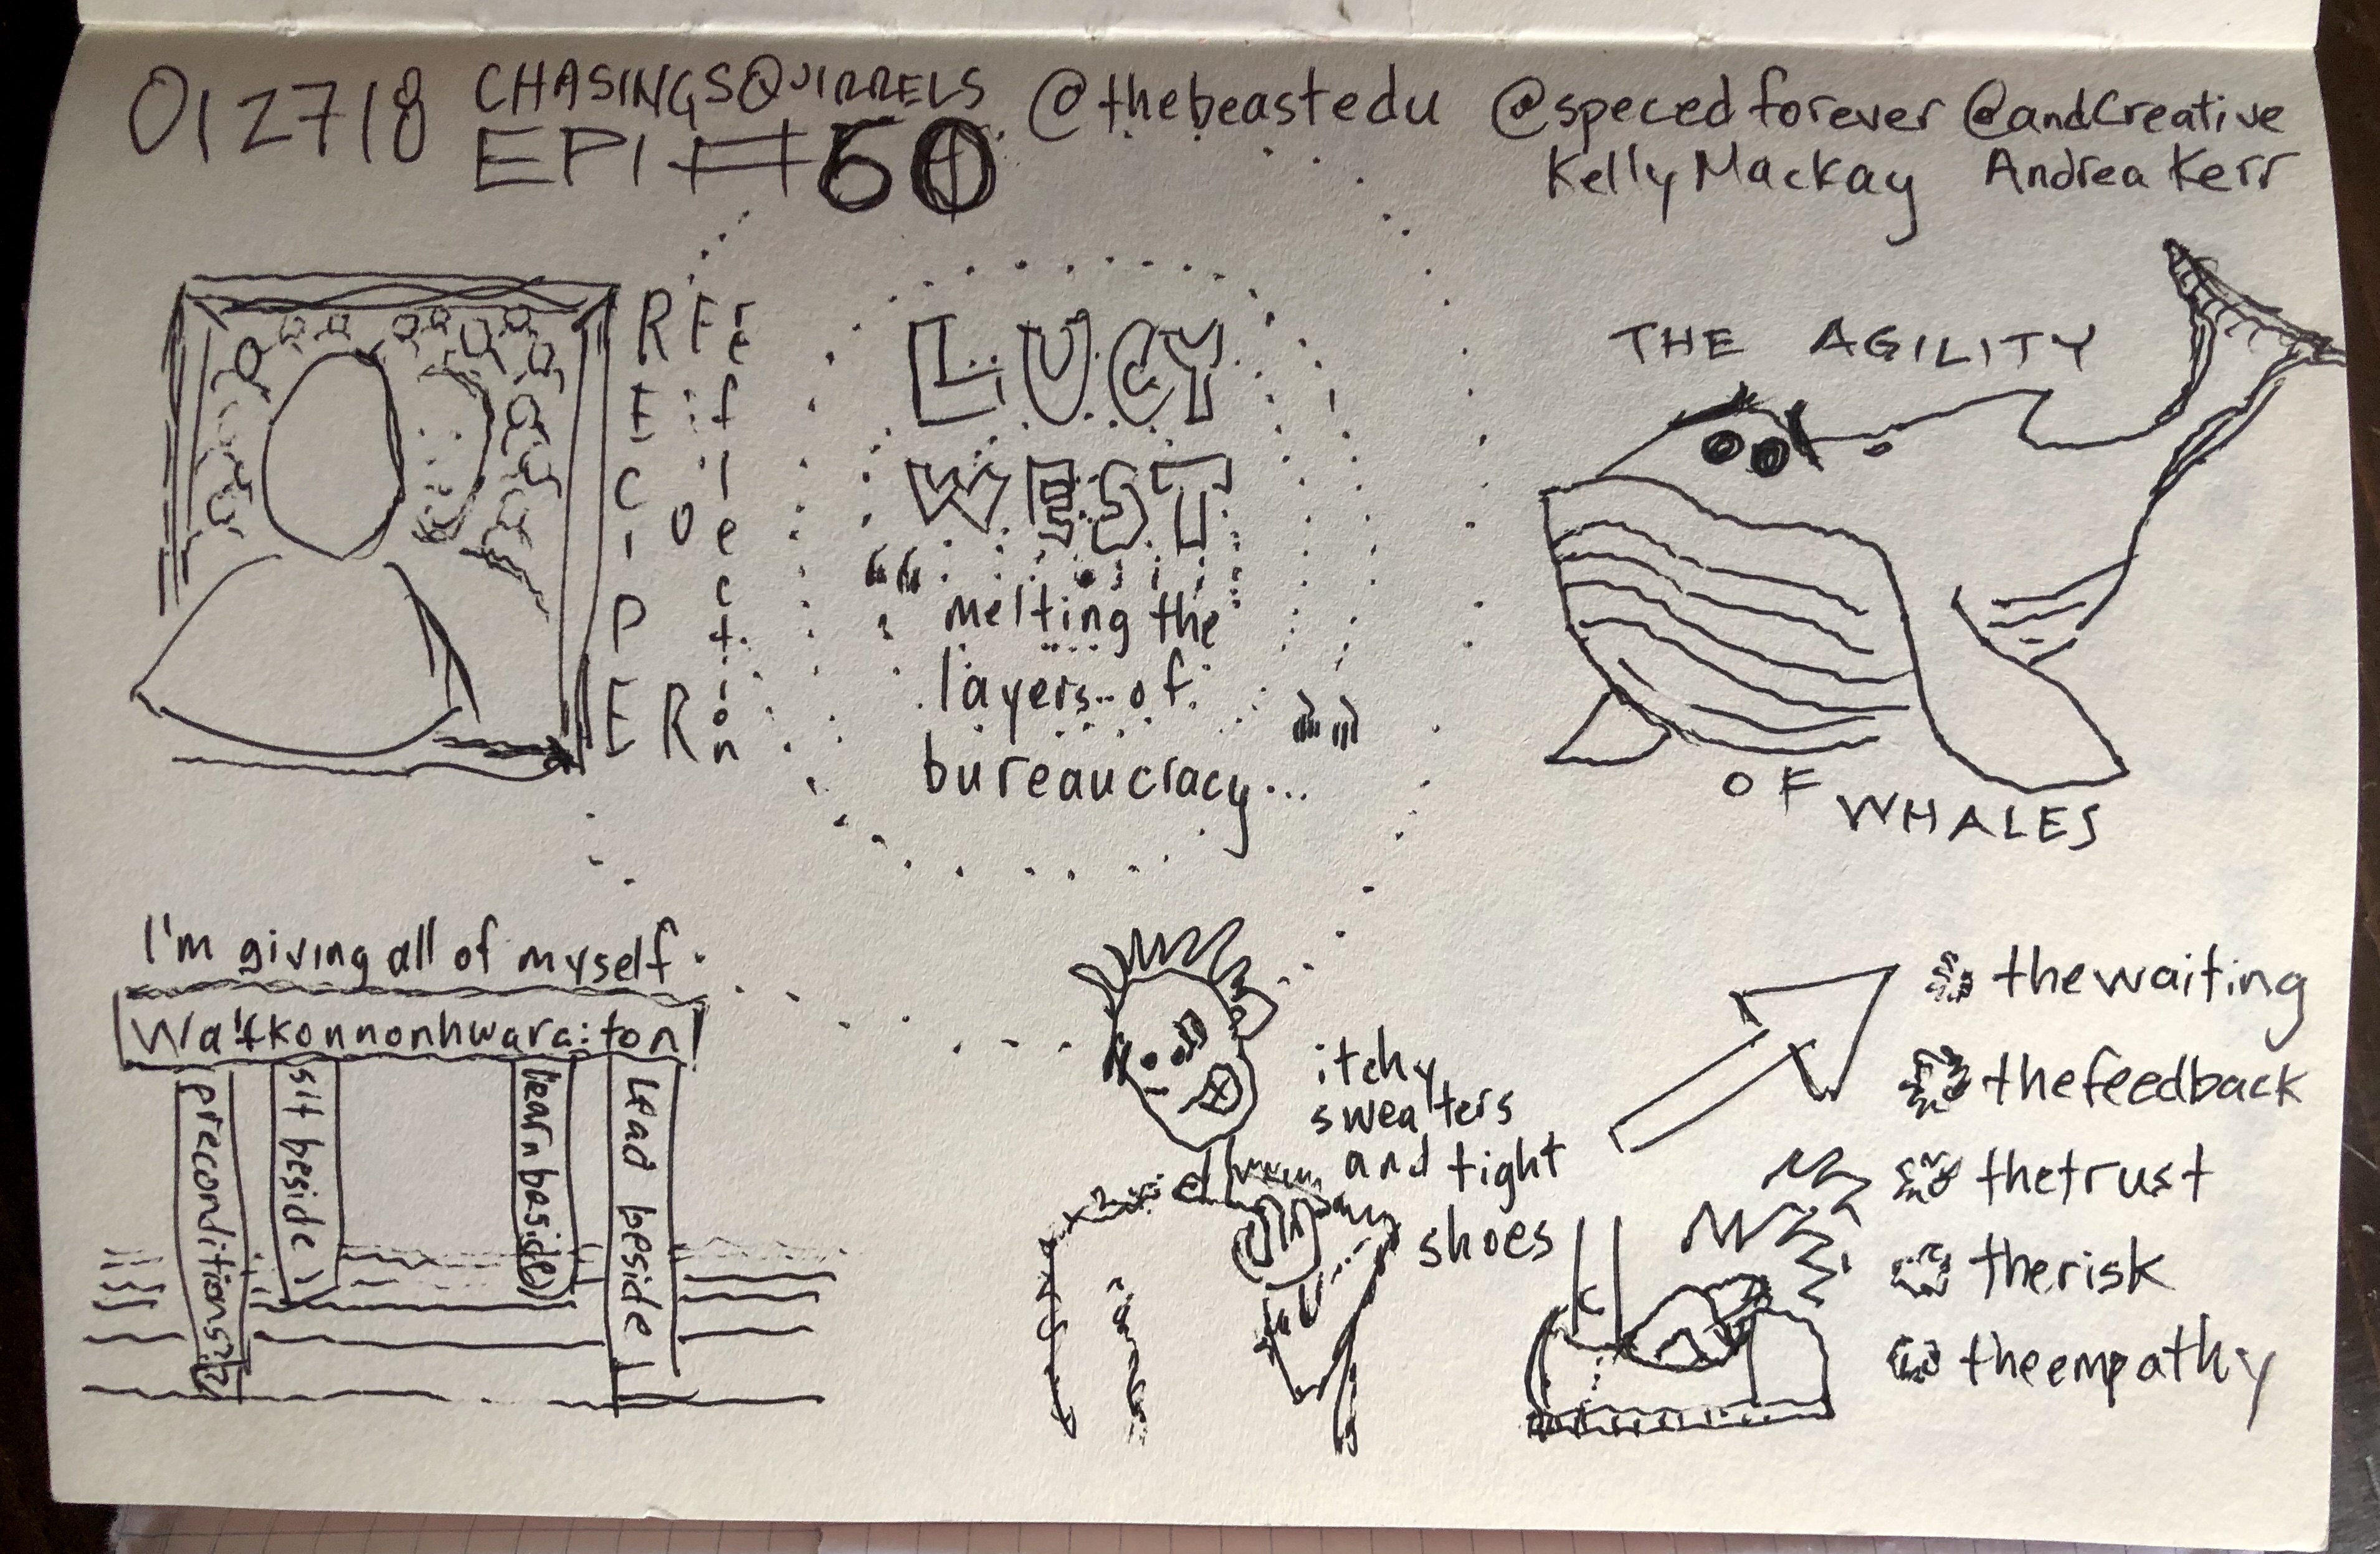 012718 CHASINGSQUIRRELS @thebeastedu @spacedforever @andCreative
EPI #50 Kelly Mackay Andrea Kerr
RECIPE
FOR
Reflection
LUCY
WEST
“melting the
layers of
bureaucracy...”
THE AGILITY
OF WHALES
I'm giving all of myself.
preconditions?
sit beside
learn beside
Lead beside
itchy
sweaters
and tight
shoes
thewaiting
thefeedback
thetrust
therisk
theempathy